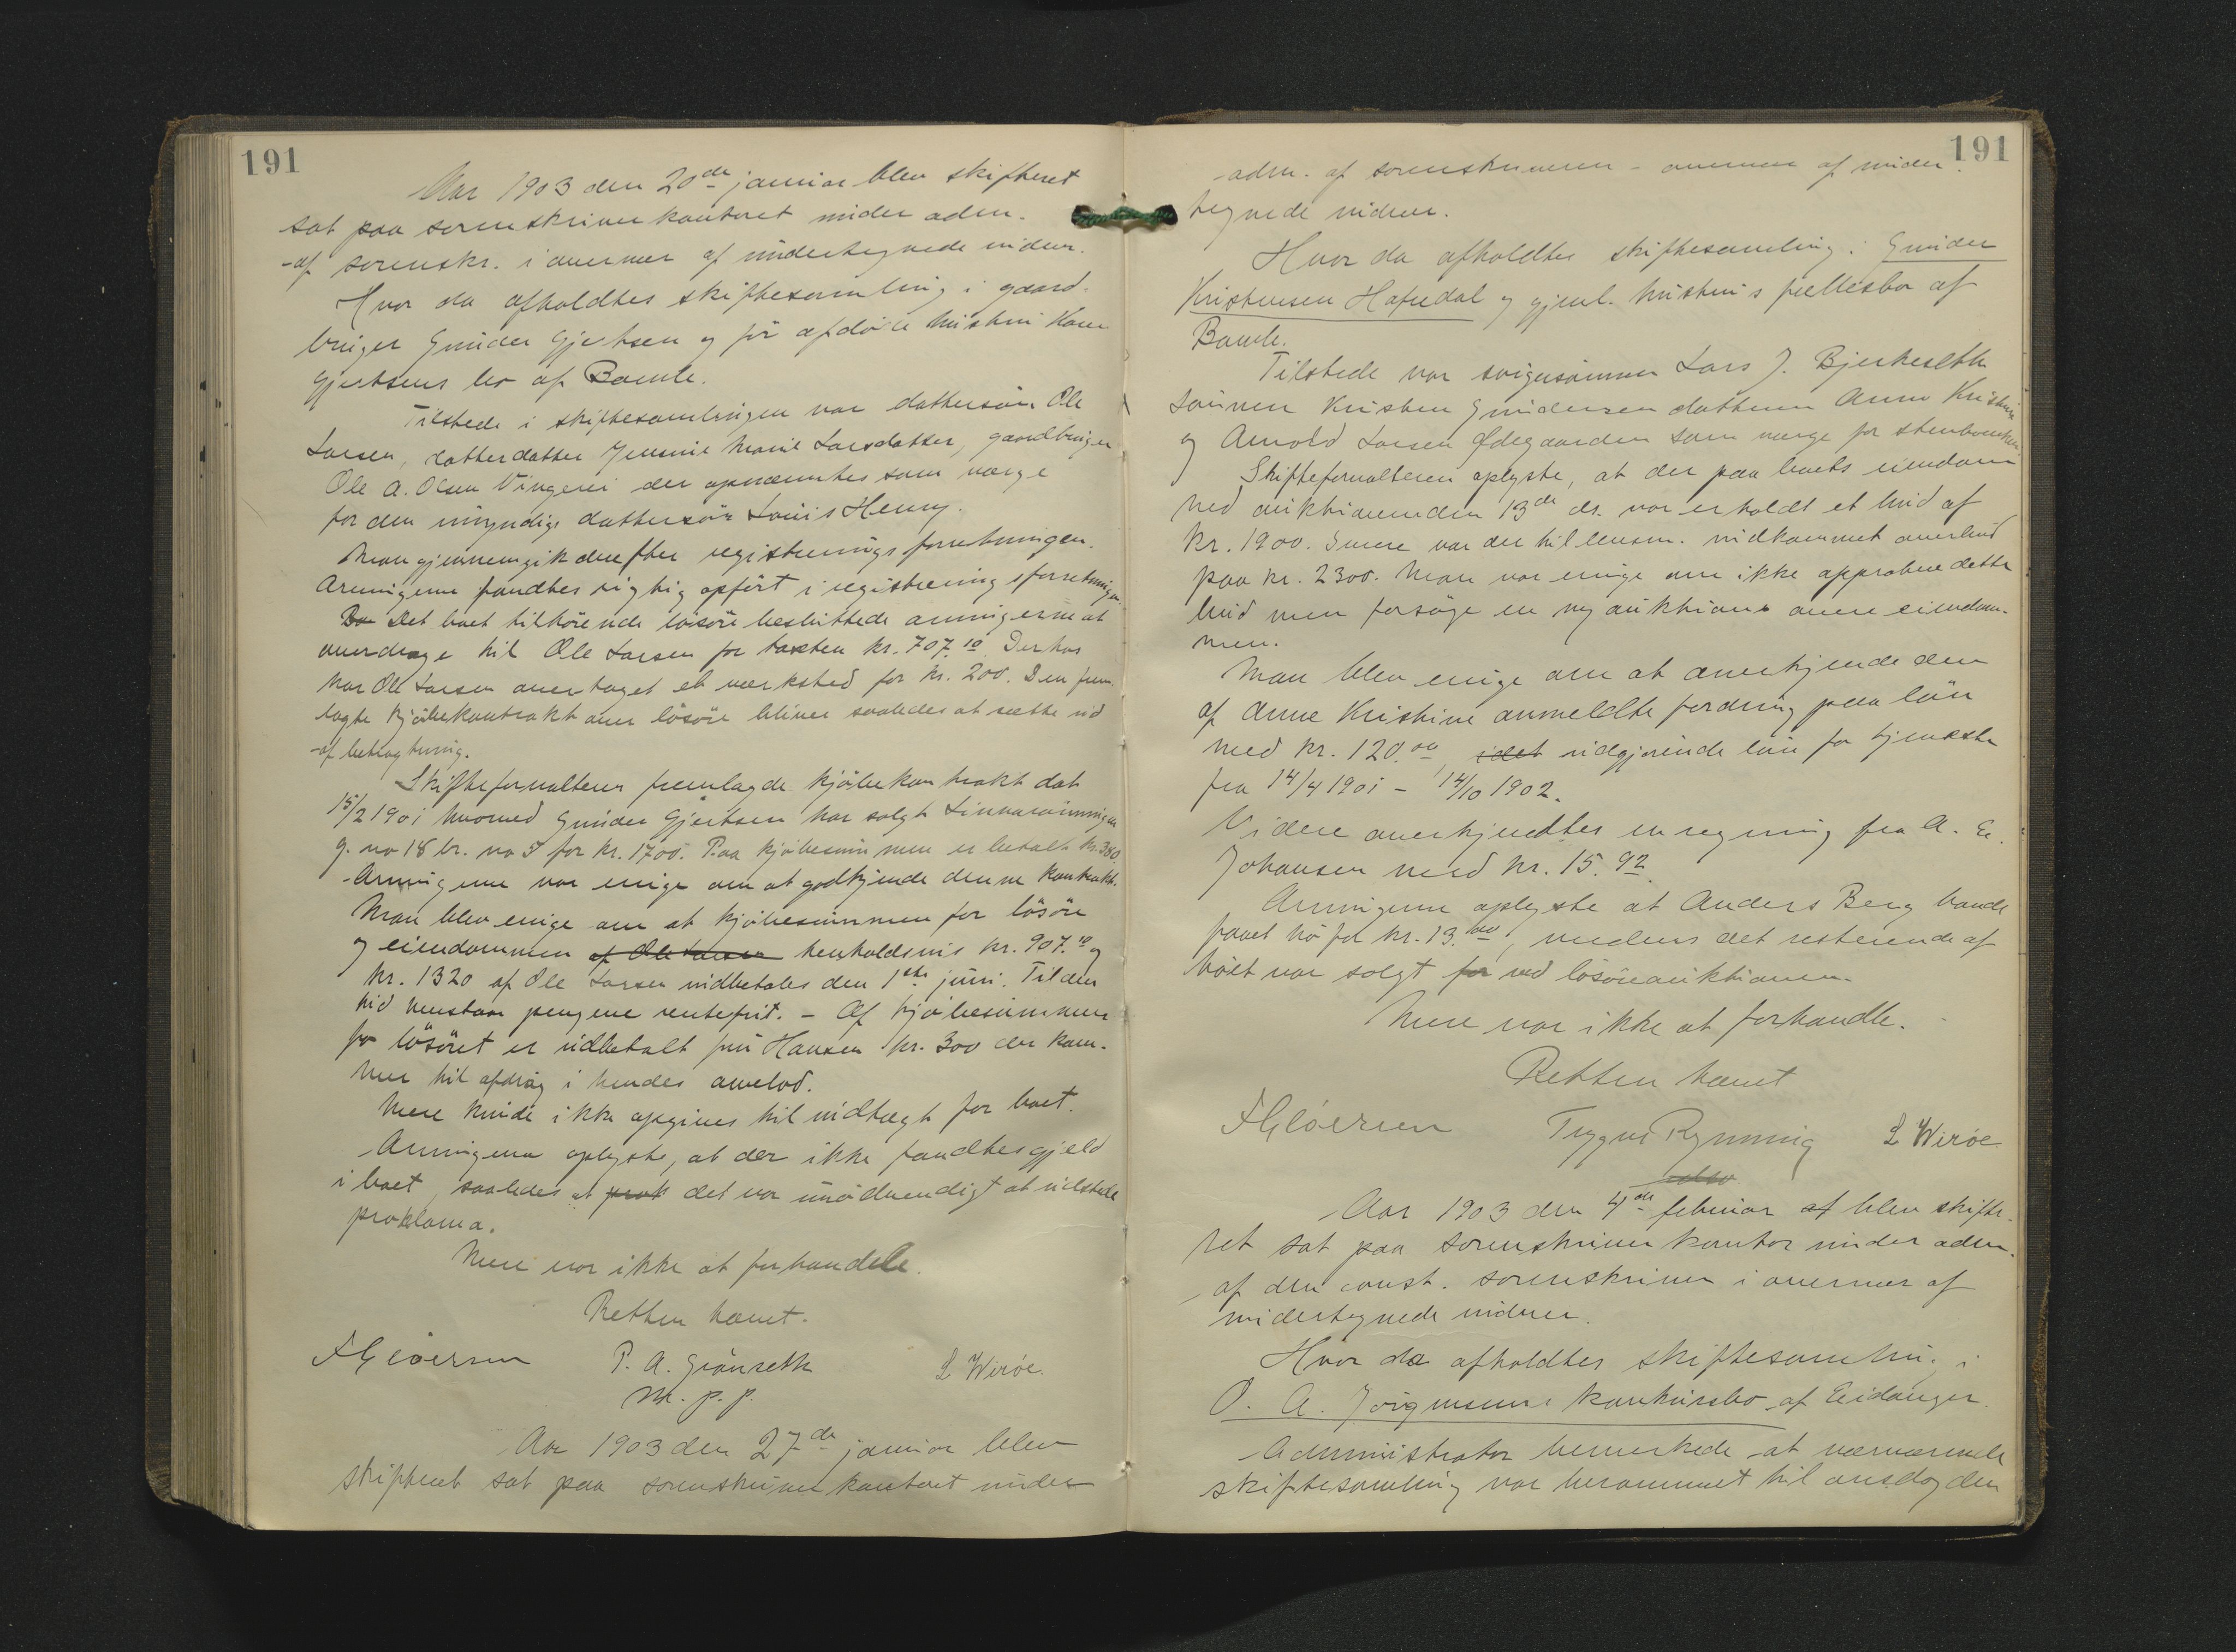 191
Aar 1903 den 20de januar blev skifteret
sat paa sorenskriverkontoret under adm.
af sorenskr. i overvær af undertegnede vidner.
Hvor da afholdtes skiftesamling i gaard-
bruger Gunder Gjertsen og før afdøde hustru Karen
Gjertsens bo af Bamle.
Tilstede i skiftesamlingen var dattersøn Ole
Larsen, datterdatter Jensine Marie Larsdatter, gaardbruger
Ole A. Olsen Vingerei der opnævntes som værge
for den umyndige dattersøn Louis Henry.
Man gjennemgik derefter registreringsforretningen.
Arvingerne fandtes rigtig opført i registreringsforretningen.
Bo Det boet tilhørende løsøre besluttede arvingerne at
overdrage til Ole Larsen for taxten kr. 707.10. Derhos
har Ole Larsen overtaget et værksted for kr. 200. Den frem-
lagte kjøbekontrakt over løsøre bliver saaledes at sætte ud
af betragtning.
Skifteforvalteren fremlagde kjøbekontrakt dat
15/2 1901 hvorved Gunder Gjertsen har solgt
g. no 18 br. no 5 for kr. 1700. Paa kjøbesummen er betalt kr. 380.
Arvingerne var enige om at godkjende denne kontrakt.
Man blev enige om at kjøbesummen for løsøre
og eiendommen af Ole Larsen henholdsvis kr. 907.10 og
kr. 1320 af Ole Larsen indbetales den 1ste juni. Til den
tid henstaar pengene rentefrit. - Af kjøbesummen
for løsøret er udbetalt fru Hansen kr. 300 der kom-
mer til afdrag i hendes arvelod.
Mere kunde ikke opgives til indtægt for boet.
Arvingerne oplyste, at der ikke fandtes gjeld
i boet, saaledes at prok det var unødvendigt at udstede
proklama.
Mere var ikke at forhandle.
Retten hævet.
F Gløersen P. A. Grønseth L Wirøe.
m. p. p.
Aar 1903 den 27de januar blev
skifteret sat paa sorenskriverkontoret under
191
adm. af sorenskriveren - overvær af under-
tegnede vidner.
Hvor da afholdtes skiftesamling i Gunder
Kristensen Hafredal og gjenl. hustrus fællesbo af
Bamle.
Tilstede var svigersønnen Lars J. Bjerkeseth
sønnen Kristen Gundersen datteren Anne Kristine
og Arnold Larsen Ødegaarden som værge for
Skifteforvalteren oplyste, at der paa boets eiendom
ved auktionen den 13de ds. var erholdt et bud af
kr. 1900. Senere var der til lensm. indkommet overbud
paa kr. 2300. Man var enige om ikke approbere dette
bud men forsøge en ny auktion over eiendom-
men.
Man blev enige om at anerkjende den
af Anne Kristine anmeldte fordring paa løn
med kr. 120.00, idet udgjørende løn for tjeneste
fra 14/4 1901 - 14/10 1902.
Videre anerkjendtes en regning fra A. E.
Johansen med kr. 15.92.
Arvingerne oplyste at Anders Berg havde
faaet hø for kr. 13.00, medens det resterende af
høet var solgt for ved løsøreauktionen.
Mere var ikke at forhandle.
Retten hævet
F Gløersen Trygve Rynning L Wirøe
Aar 1903 den 4de februar af blev skifte-
ret sat paa sorenskriverkontor under adm.
af den const. sorenskriver i overvær af
undertegnede vidner.
Hvor da afholdtes skiftesamling i
O. A. Jørgensens konkursbo af Eidanger.
Administrator bemerkede at nærværende
skiftesamling var berammet til onsdag den